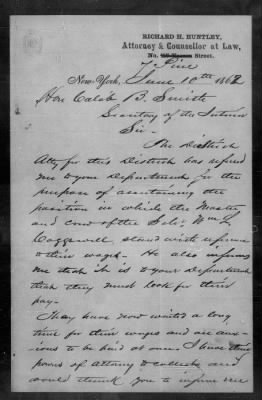 RICHARD H. HUNTLEY,
Attorney & Counsellor at Law,
No. Street.
7 Pine
New-York, June 10th 1862
Hon Caleb B. Smith
Secretary of the Interior
Sir-
The District
Atty for this District has refered
me to your department for the
purpose of ascertaining the
position in which the Master
and crew of the Wm L
Coggeswell stand with reference
to their wages. He also informs
me that it is to your Department
that they must look for their
pay-
They have now waited a long
time for their wages and are anx-
ious to be paid at once. I have their
powers of attorney to collect and
would thank you to inform me